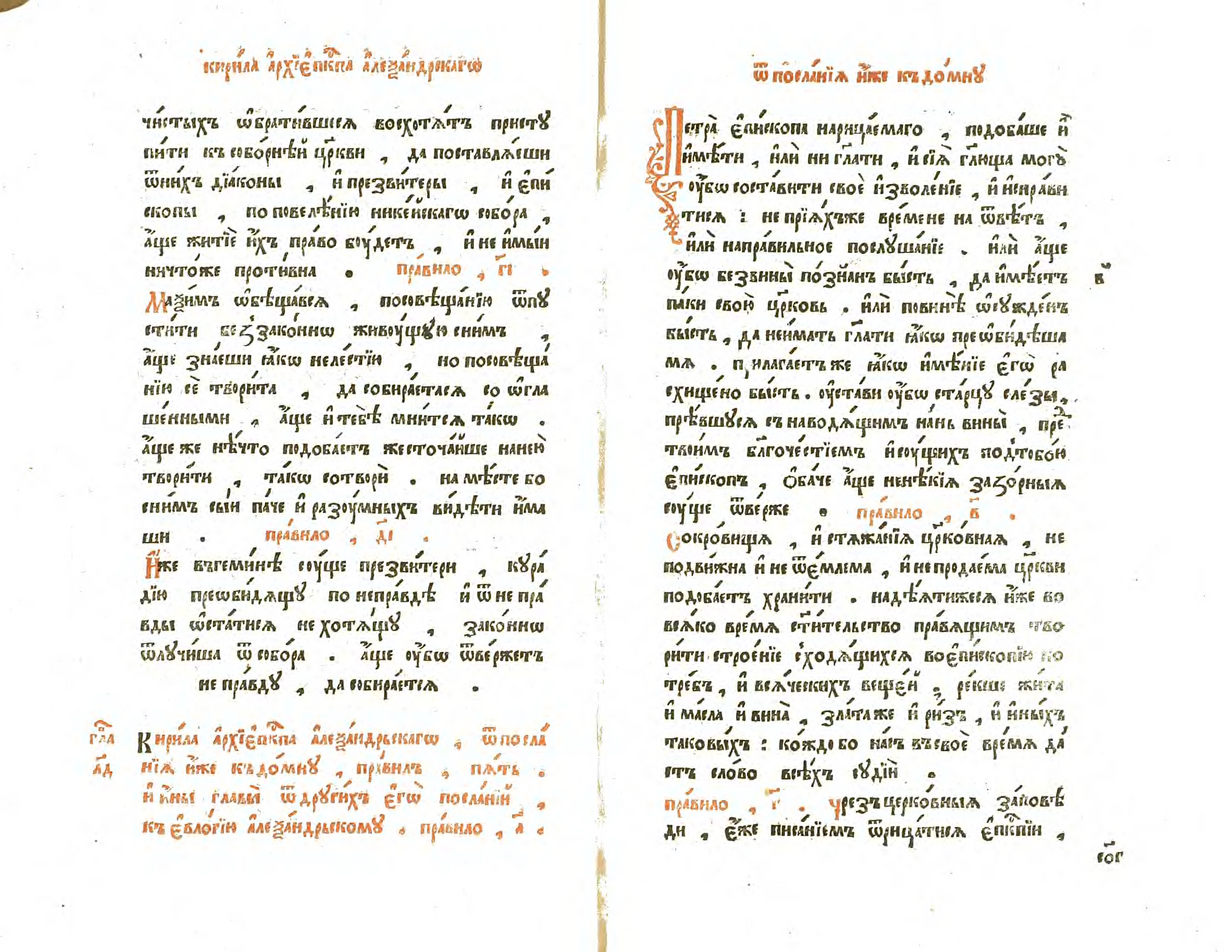 кири́ла а҆рхїє҆пкⷭ҇па а҆леѯа́ндрскагѡ
чи́стыхъ ѡ҆брати́вшиєся восхотѧ́тъ присту
пи́ти къ собо́рнѣй цр҃кви , да поставлѧ́еши
ѿни́хъ дїа́коны , и҆ презви́теры , и҆ є҆пи
скопы , по повелѣ́нїю нике́йскагѡ собо́ра ,
а҆́ще житїѐ и҆́хъ пра́во бꙋ́детъ , и҆ не и҆мы́й
ничто́же проти́вна . пра́вило , г҃і .
Маѯи́мъ ѡ҆бѣща́всѧ , посовѣща́нїю ѿпꙋ
сти́ти беззако́ннѡ живꙋ́щꙋю сни́мъ ,
а҆́ще зна́еши ꙗ҆́кѡ неле́стїю , но посовѣща́
нїю сѐ твори́та , да собира́єтасѧ со ѡ҆гла
ше́нными , а҆́ще и҆ тебѣ̀ мни́тсѧ та́кѡ .
а҆́ще же нѣ́что подоба́етъ жесточа́йше нане́ю
твори́ти , та́кѡ сотворѝ . на мѣ́сте бо
сни́мъ сы́й па́че и҆ разꙋ́мныхъ ви́дѣти и҆́ма
ши . пра́вило , д҃і .
И҆́же въгеми́нѣ сꙋ́ще презви́тери , кꙋра́
дїю преѡби́дѧщꙋ по непра́вдѣ и҆ ѿ не пра́
вды ѡ҆ста́тисѧ не хотѧ́щꙋ , зако́ннѡ
ѿлꙋчи́ша ѿ собо́ра . а҆́ще ᲂу҆́бѡ ѿве́ржетъ
не пра́вдꙋ , да собира́етсѧ .
гла
л҃д
Кири́ла а҆рхїє҆пкⷭ҇па а҆леѯа́ндрьскагѡ , ѿ посла́
нїѧ и҆́же къ до́мнꙋ , пра́вилъ , пѧ́ть .
и҆ и҆́ны главы̀ ѿ дрꙋги́хъ є҆гѡ̀ посла́нїй ,
къ є҆вло́гїю а҆леѯа́ндрьскомꙋ . пра́вило , а҃ .
ѿ посла́нїѧ и҆́же къ до́мнꙋ
Петра̀ є҆пи́скопа нарица́емаго , подоба́ше и҆̀
и҆мѣ́ти , и҆лѝ ни гл҃ати , и҆ сїѧ̀ гл҃юща могꙋ̀
ᲂу҆́бѡ соста́вити своѐ и҆зволе́нїе , и҆ и҆спра́ви
тисѧ : не прїѧ́хъже вре́мене на ѿвѣ́тъ ,
и҆лѝ напра́вильное послꙋша́нїе . и҆лѝ а҆́ще
ᲂу҆́бѡ без вины̀ по́знанъ бы́сть , да и҆мѣ́етъ
в҃
па́ки свою̀ цр҃ковь . и҆лѝ повинѣ̀ ѡ҆сꙋжде́нъ
бы́сть , да неи́мать гл҃ати ꙗ҆́кѡ преѡби́дѣша
мѧ . прилага́етъ же ꙗ҆́кѡ и҆мѣ́нїе є҆гѡ̀ ра
схище́но бы́сть . ᲂу҆ста́ви ᲂу҆́бѡ ста́рцꙋ сле́зы ,
прѣ́вшꙋсѧ съ наводѧ́щимъ на́нь вины̀ , пре
твои́мъ бл҃гоче́стїемъ и҆ сꙋ́щихъ под̾тобо́ю
є҆пи́скопъ , ѻ҆ба́че а҆́ще не нѣ́кїѧ зазо́рныѧ
сꙋ́ще ѿве́рже . пра́вило , в҃ .
Сокро́вища , и҆ стѧжа́нїѧ цр҃ко́внаѧ , не
подви́жна и҆ не ѿе́млема , и҆ не продае́ма цр҃кви
подоба́етъ храни́ти . надѣ́ѧтижесѧ и҆́же во
всѧ́ко вре́мѧ ст҃и́тельство пра́вѧщимъ тво
ри́ти строе́нїе сходѧ́щихсѧ во є҆пископїю по
тре́бъ , и҆ всѧ́ческихъ веще́й , ре́кше жи́та
и҆ ма́сла и҆ вина̀ , зла́та же и҆ ри́зъ , и҆ и҆ны́хъ
таковы́хъ : ко́ждо бо на́съ въ своѐ вре́мѧ да́
стъ сло́во всѣ́хъ сꙋдїѝ .
пра́вило , г҃ . чрезъ церко́вныѧ за́повѣ
ди , є҆́же писа́нїемъ ѿрица́тисѧ є҆пкⷭ҇пїи ,
со҃г